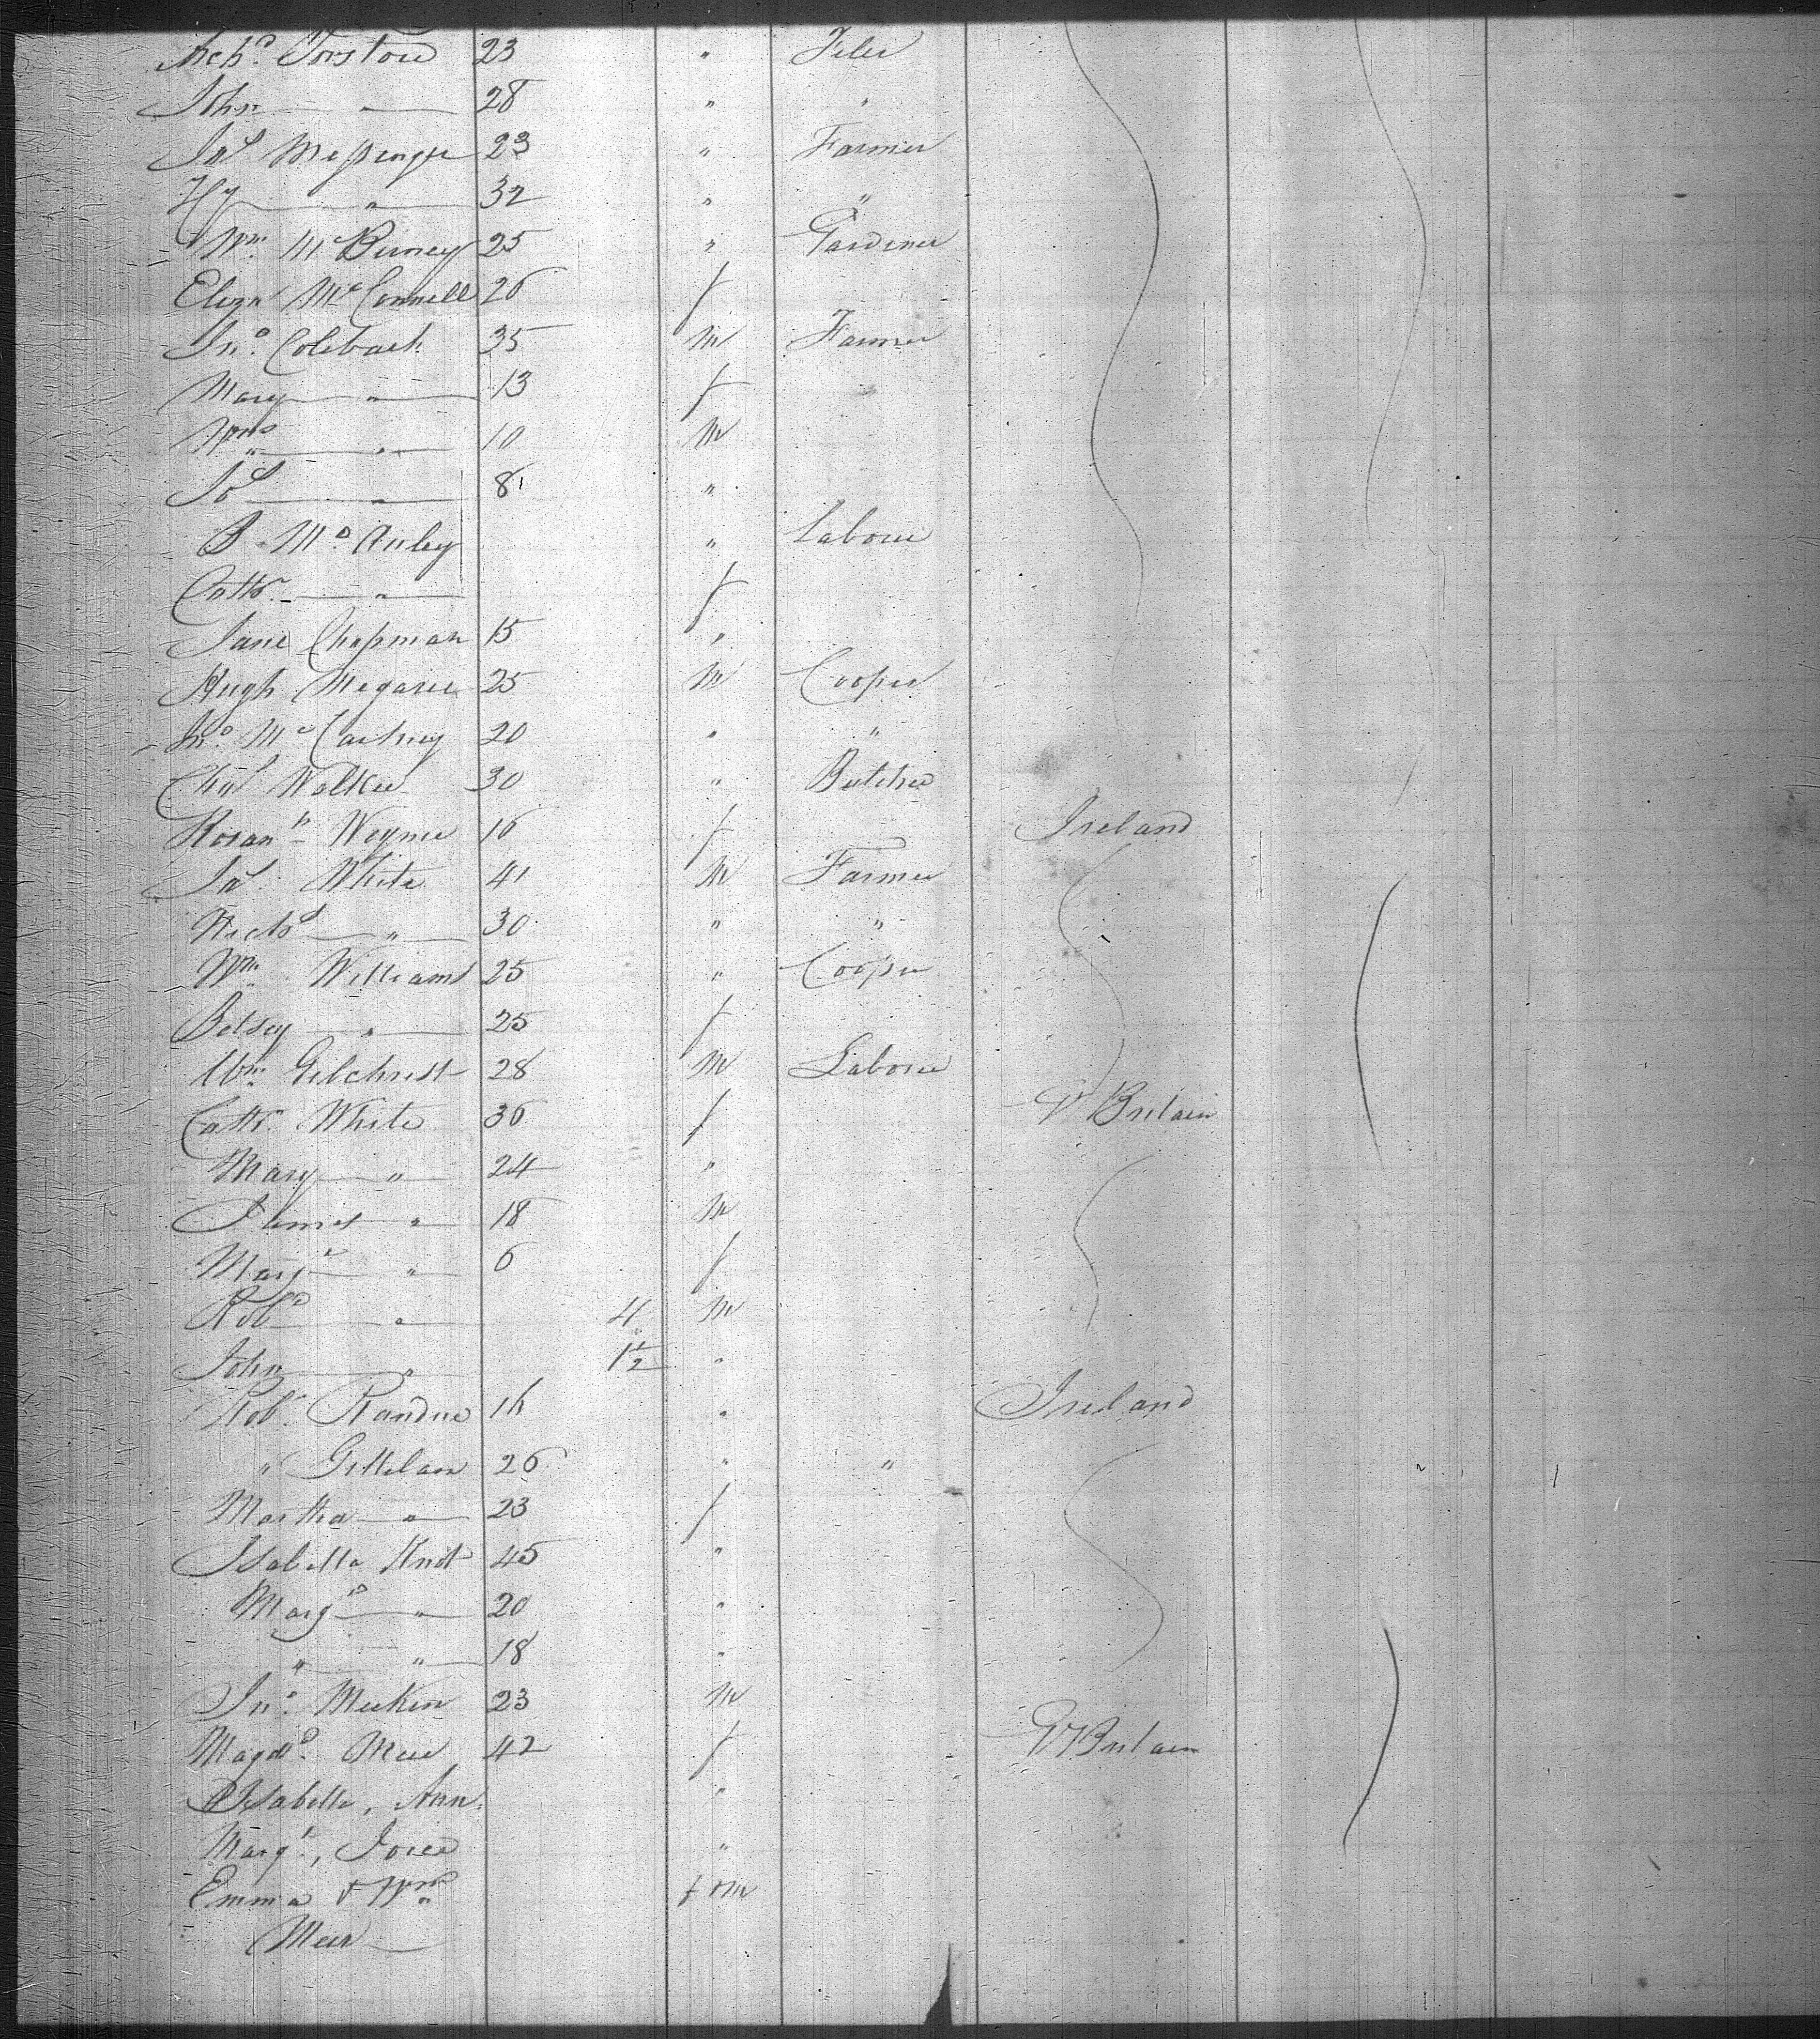 Archd. Torstow 23 " Tiler
John " 28 " "
Jas Messenger 23 " Farmer
Hy " 32 " "
Wm. McBirney 25 " Gardener
Eliza McConnell 26 f
Jno. Colebach 35 M Farmer
Mary " 13 f
Wm " 10 M
Jos " 8 "
B. Mc. Auley " Laborer
Cath. " f
Jane Chapman 15 "
Hugh Megaree 25 M Cooper
Jno. McCartney 20 " "
Chas Walker 30 " Butcher
Rosanh Weyme 16 f Ireland
Jas. White 41 M Farmer
Richd " 30 " "
Wm. Williams 25 " Cooper
Betsey " 25 f
Wm. Gilchrist 28 M Laborer
Cath. White 36 f Gt Britain
Mary " 24 "
James " 18 M
Margt " 6 f
Robt " 4 M
John " 1½ "
Rob. 16 " Ireland
" 26 " "
Martha " 23 f
Isabella 45 "
Margt " 20 "
" " 18 "
Jno. Meeken 23 M
Magdn. Meer 42 f Gt Britain
Isabella, Ann "
Margt., Joice "
Emma & Wm f & m
Meer